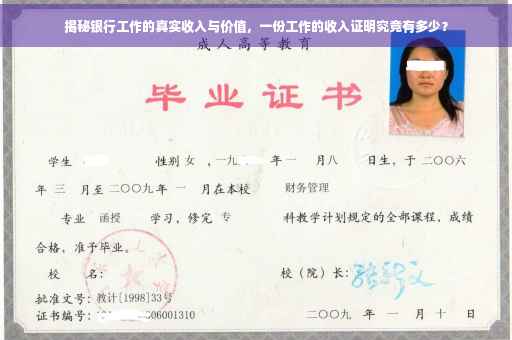 揭秘银行工作的真实收入与价值，一份工作的收入证明究竟有多少？
成人高等教育
毕业证书
学生 性别 女 ，一九 年一 月八 日生，于二〇〇六
年 三 月至二〇〇九年 一 月在本校 财务管理
专业 函授 学习，修完 专 科教学计划规定的全部课程，成绩
合格，准予毕业。
校 名： 校（院）长：
批准文号：教计[1998]33号
证书编号： 06001310 二〇〇九 年 一 月 十 日